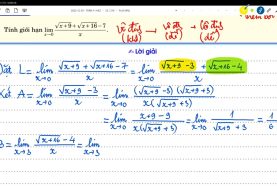 Tính giới hạn lim x→0 (√(x+9) + √(x+16) − 7)/x
Lời giải
Đặt L = lim x→0 (√(x+9) + √(x+16) − 7)/x = lim x→0 (√(x+9) − 3 + √(x+16) − 4)/x
Xét A = lim x→0 (√(x+9) − 3)/x = lim x→0 (√(x+9) − 3)(√(x+9) + 3)/x(√(x+9) + 3)
= lim x→0 (x + 9 − 9)/x(√(x+9) + 3) = lim x→0 1/(√(x+9) + 3) = 1/6
B = lim x→3 (√(x+16) − 4)/x = lim x→3